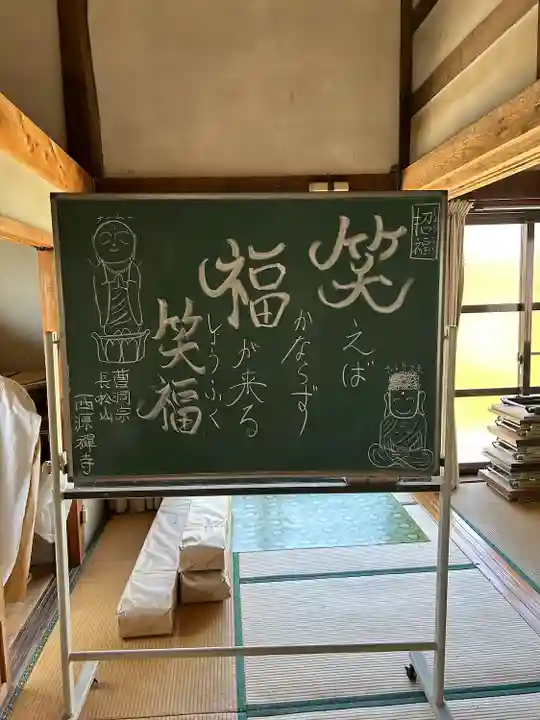 招福
笑えば
かならず
福が来る
笑福
しょうふく
曹洞宗
長松山
西源禅寺